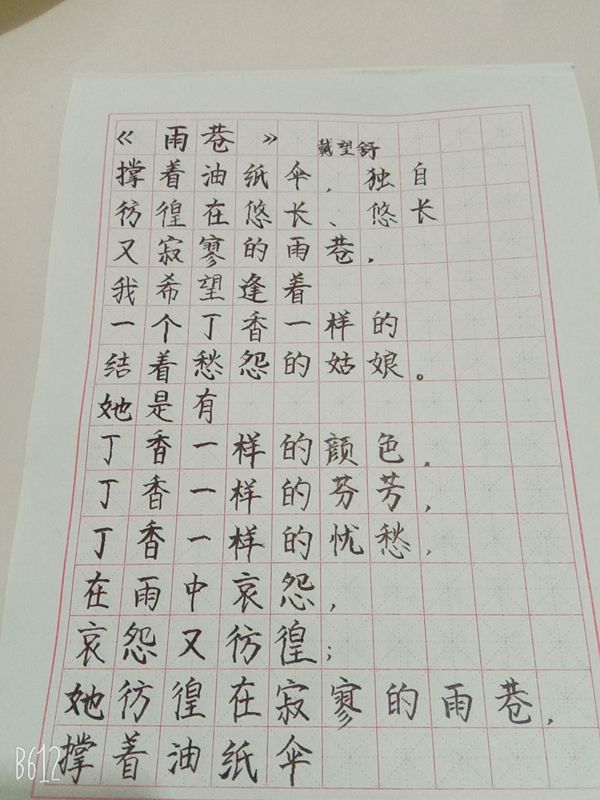 《雨巷》 戴望舒
撑着油纸伞，独自
彷徨在悠长、悠长
又寂寥的雨巷，
我希望逢着
一个丁香一样的
结着愁怨的姑娘。
她是有
丁香一样的颜色，
丁香一样的芬芳，
丁香一样的忧愁，
在雨中哀怨，
哀怨又彷徨；
她彷徨在寂寥的雨巷，
撑着油纸伞
B612